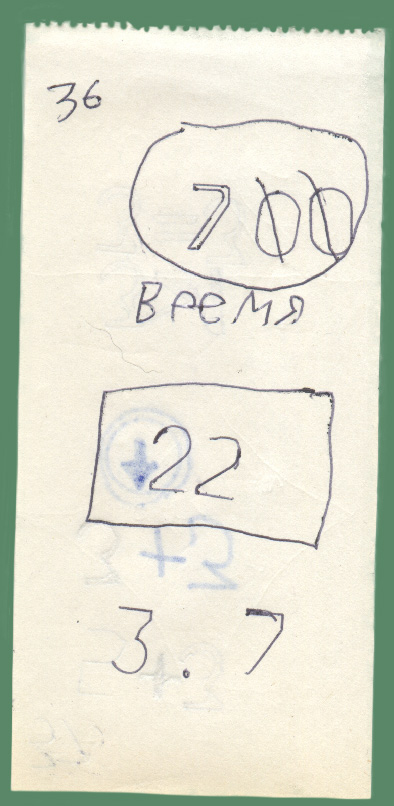 36
700
время
22
3.7